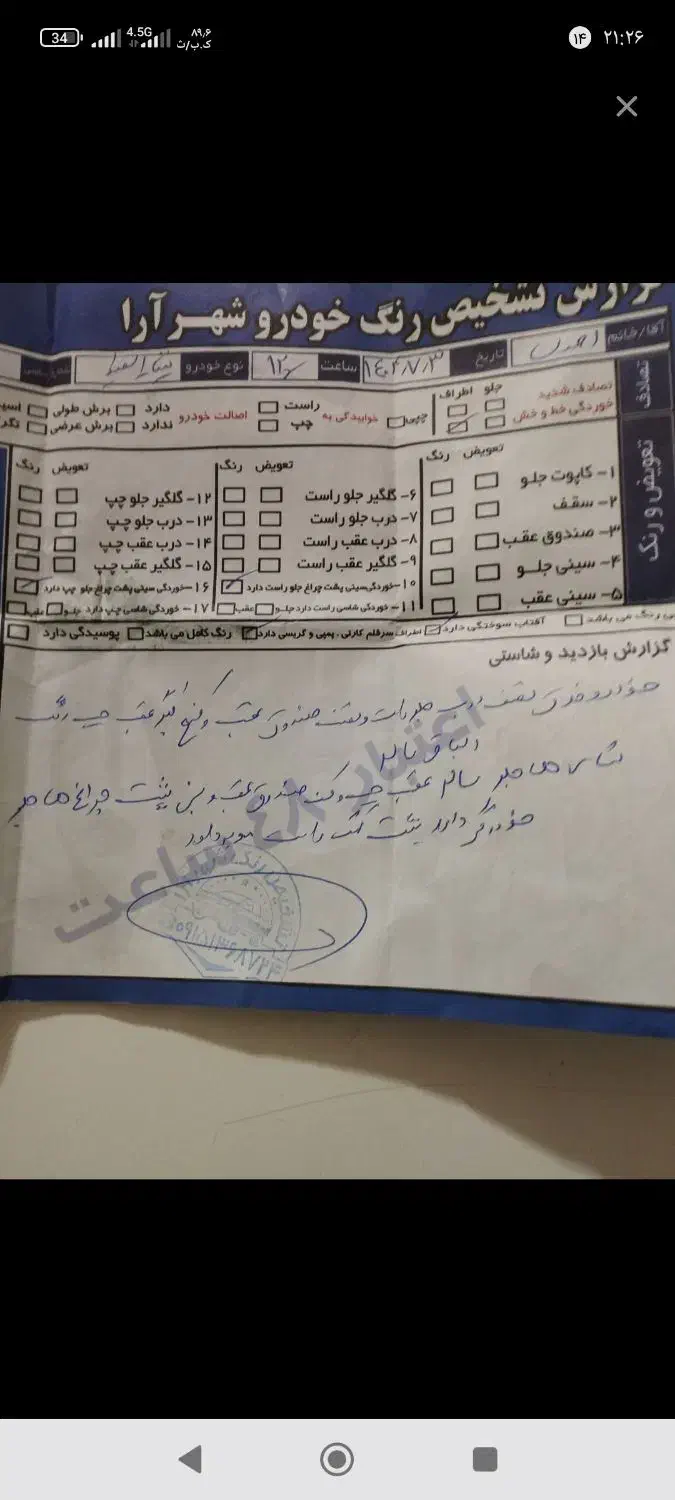 34
4.5G
۸۹٫۶
ک.ب/ث
۱۴
۲۱:۲۶
گزارش تشخیص رنگ خودرو شهر آرا
آقا/خانم
تاریخ ۱۴۰۴/۷/۳ ساعت ۱۲ نوع خودرو
تصادف
تصادف شدید جلو اطراف
خوردگی خط و خش
خوابیدگی به راست چپ
چپی
اصالت خودرو دارد ندارد
برش طولی
برش عرضی
تعویض و رنگ
تعویض رنگ
۱- کاپوت جلو
۲- سقف
۳- صندوق عقب
۴- سینی جلو
۵- سینی عقب
تعویض رنگ
۶- گلگیر جلو راست
۷- درب جلو راست
۸- درب عقب راست
۹- گلگیر عقب راست
۱۰- خوردگی سینی پشت چراغ جلو راست دارد
۱۱- خوردگی شاسی راست دارد جلو عقب
تعویض رنگ
۱۲- گلگیر جلو چپ
۱۳- درب جلو چپ
۱۴- درب عقب چپ
۱۵- گلگیر عقب چپ
۱۶- خوردگی سینی پشت چراغ جلو چپ دارد
۱۷- خوردگی شاسی چپ دارد جلو عقب
رنگ می باشد آفتاب سوختگی دارد اطراف سرقلم کارتی، پمپی و گریسی دارد رنگ کامل می باشد پوسیدگی دارد
گزارش بازدید و شاستی
خودرو فوق سقف درب جلو راست و سقف صندوق عقب و گلگیر عقب چپ رنگ
الباقی سالم
شاسی ها جلو سالم عقب چپ و کف صندوق عقب و سینی پشت چراغ ها جلو
خوردگی دارد پشت راست
اعتبار ۴۸ ساعت